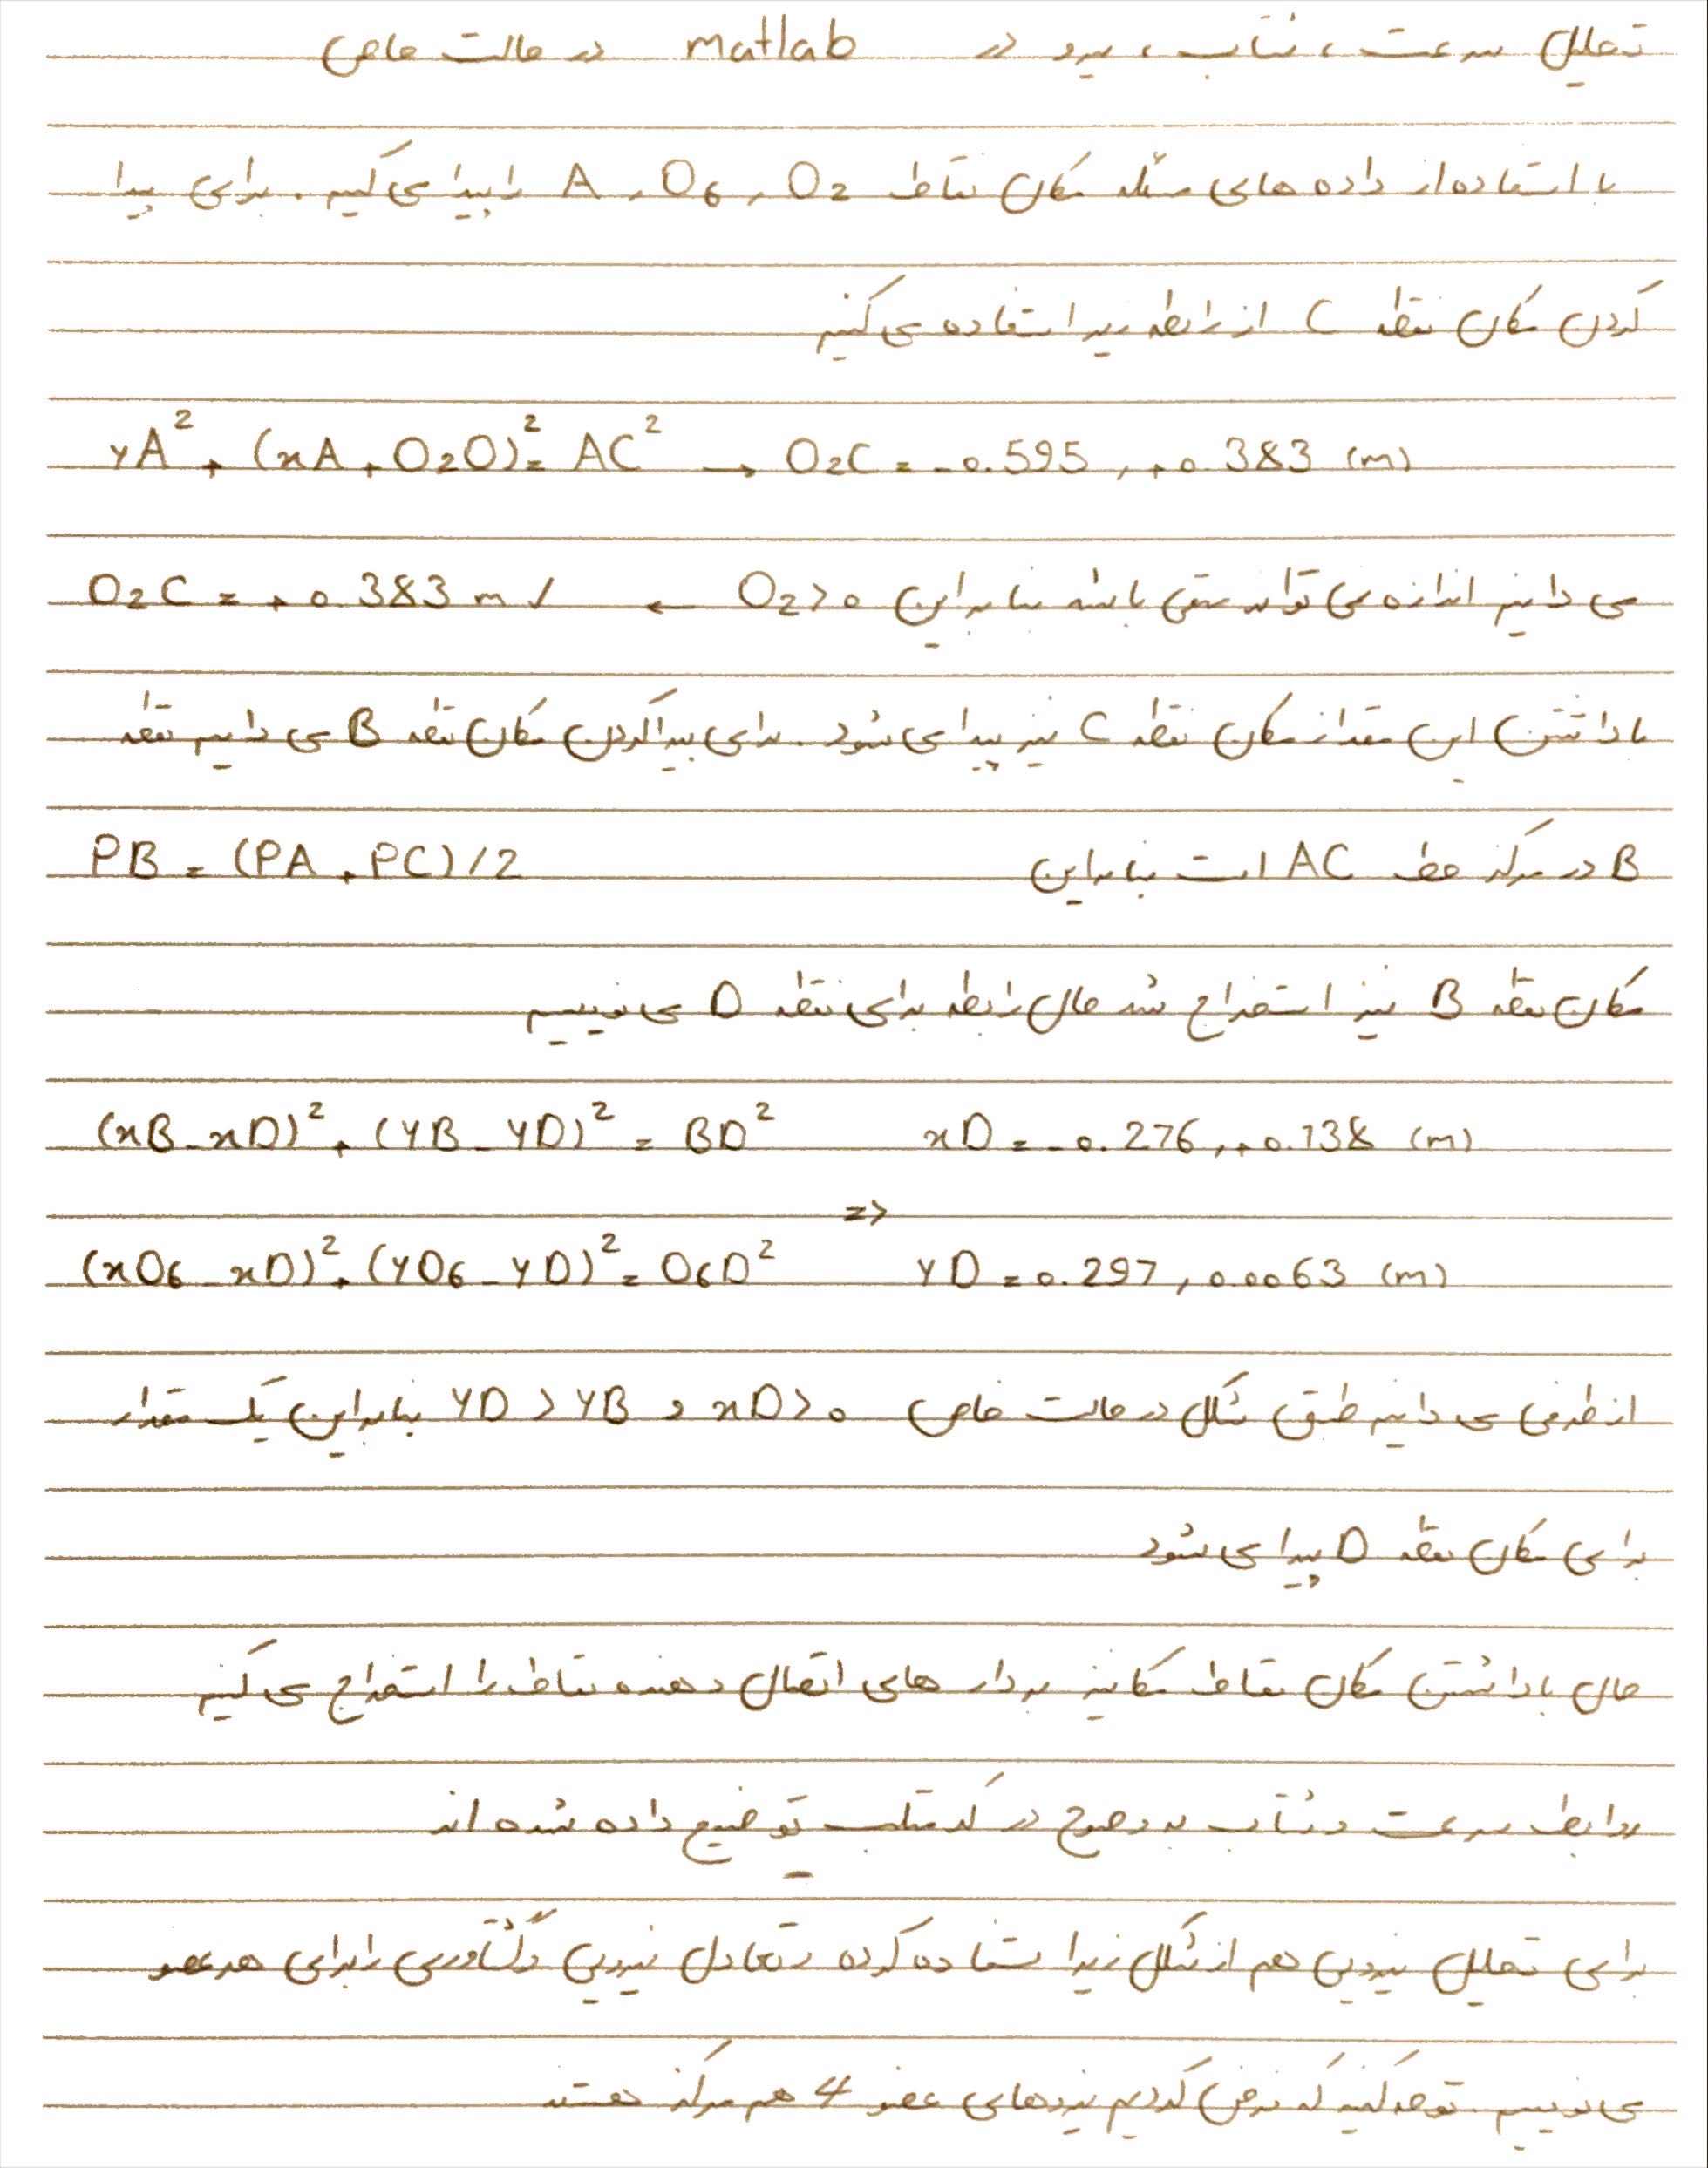 تحلیل سرعت ، شتاب ، نیرو در matlab در حالت خاص
با استفاده از داده های مسئله مکان نقاط O2 , O6 , A را پیدا می کنیم . برای پیدا
کردن مکان نقطه C از رابطه زیر استفاده می کنیم
yA² + (xA + O2O)² = AC² → O2C = -0.595 , +0.383 (m)
می دانیم اندازه نمی تواند منفی باشد بنابراین O2>0 ← O2C = +0.383 m ✓
با داشتن این مقدار مکان نقطه C نیز پیدا می شود . برای پیدا کردن مکان نقطه B می دانیم نقطه
B در مرکز خط AC است بنابراین PB = (PA + PC)/2
مکان نقطه B نیز استخراج شد حال رابطه برای نقطه D می نویسیم
(xB - xD)² + (yB - yD)² = BD² xD = -0.276 , +0.138 (m)
=>
(xO6 - xD)² + (yO6 - yD)² = O6D² yD = 0.297 , 0.0063 (m)
از طرفی می دانیم طبق شکل در حالت خاص xD>0 و yD>yB بنابراین یک مقدار
برای مکان نقطه D پیدا می شود
حال با داشتن مکان نقاط مکانیزم بردار های اتصال دهنده نقاط را استخراج می کنیم
روابط سرعت و شتاب به وضوح در کد متلب توضیح داده شده اند
برای تحلیل نیرویی هم از شکل زیر استفاده کرده و تعادل نیرویی و گشتاوری را برای هر عضو
می نویسیم . توجه کنید که فرض کردیم نیروهای عضو 4 هم مرکز هستند